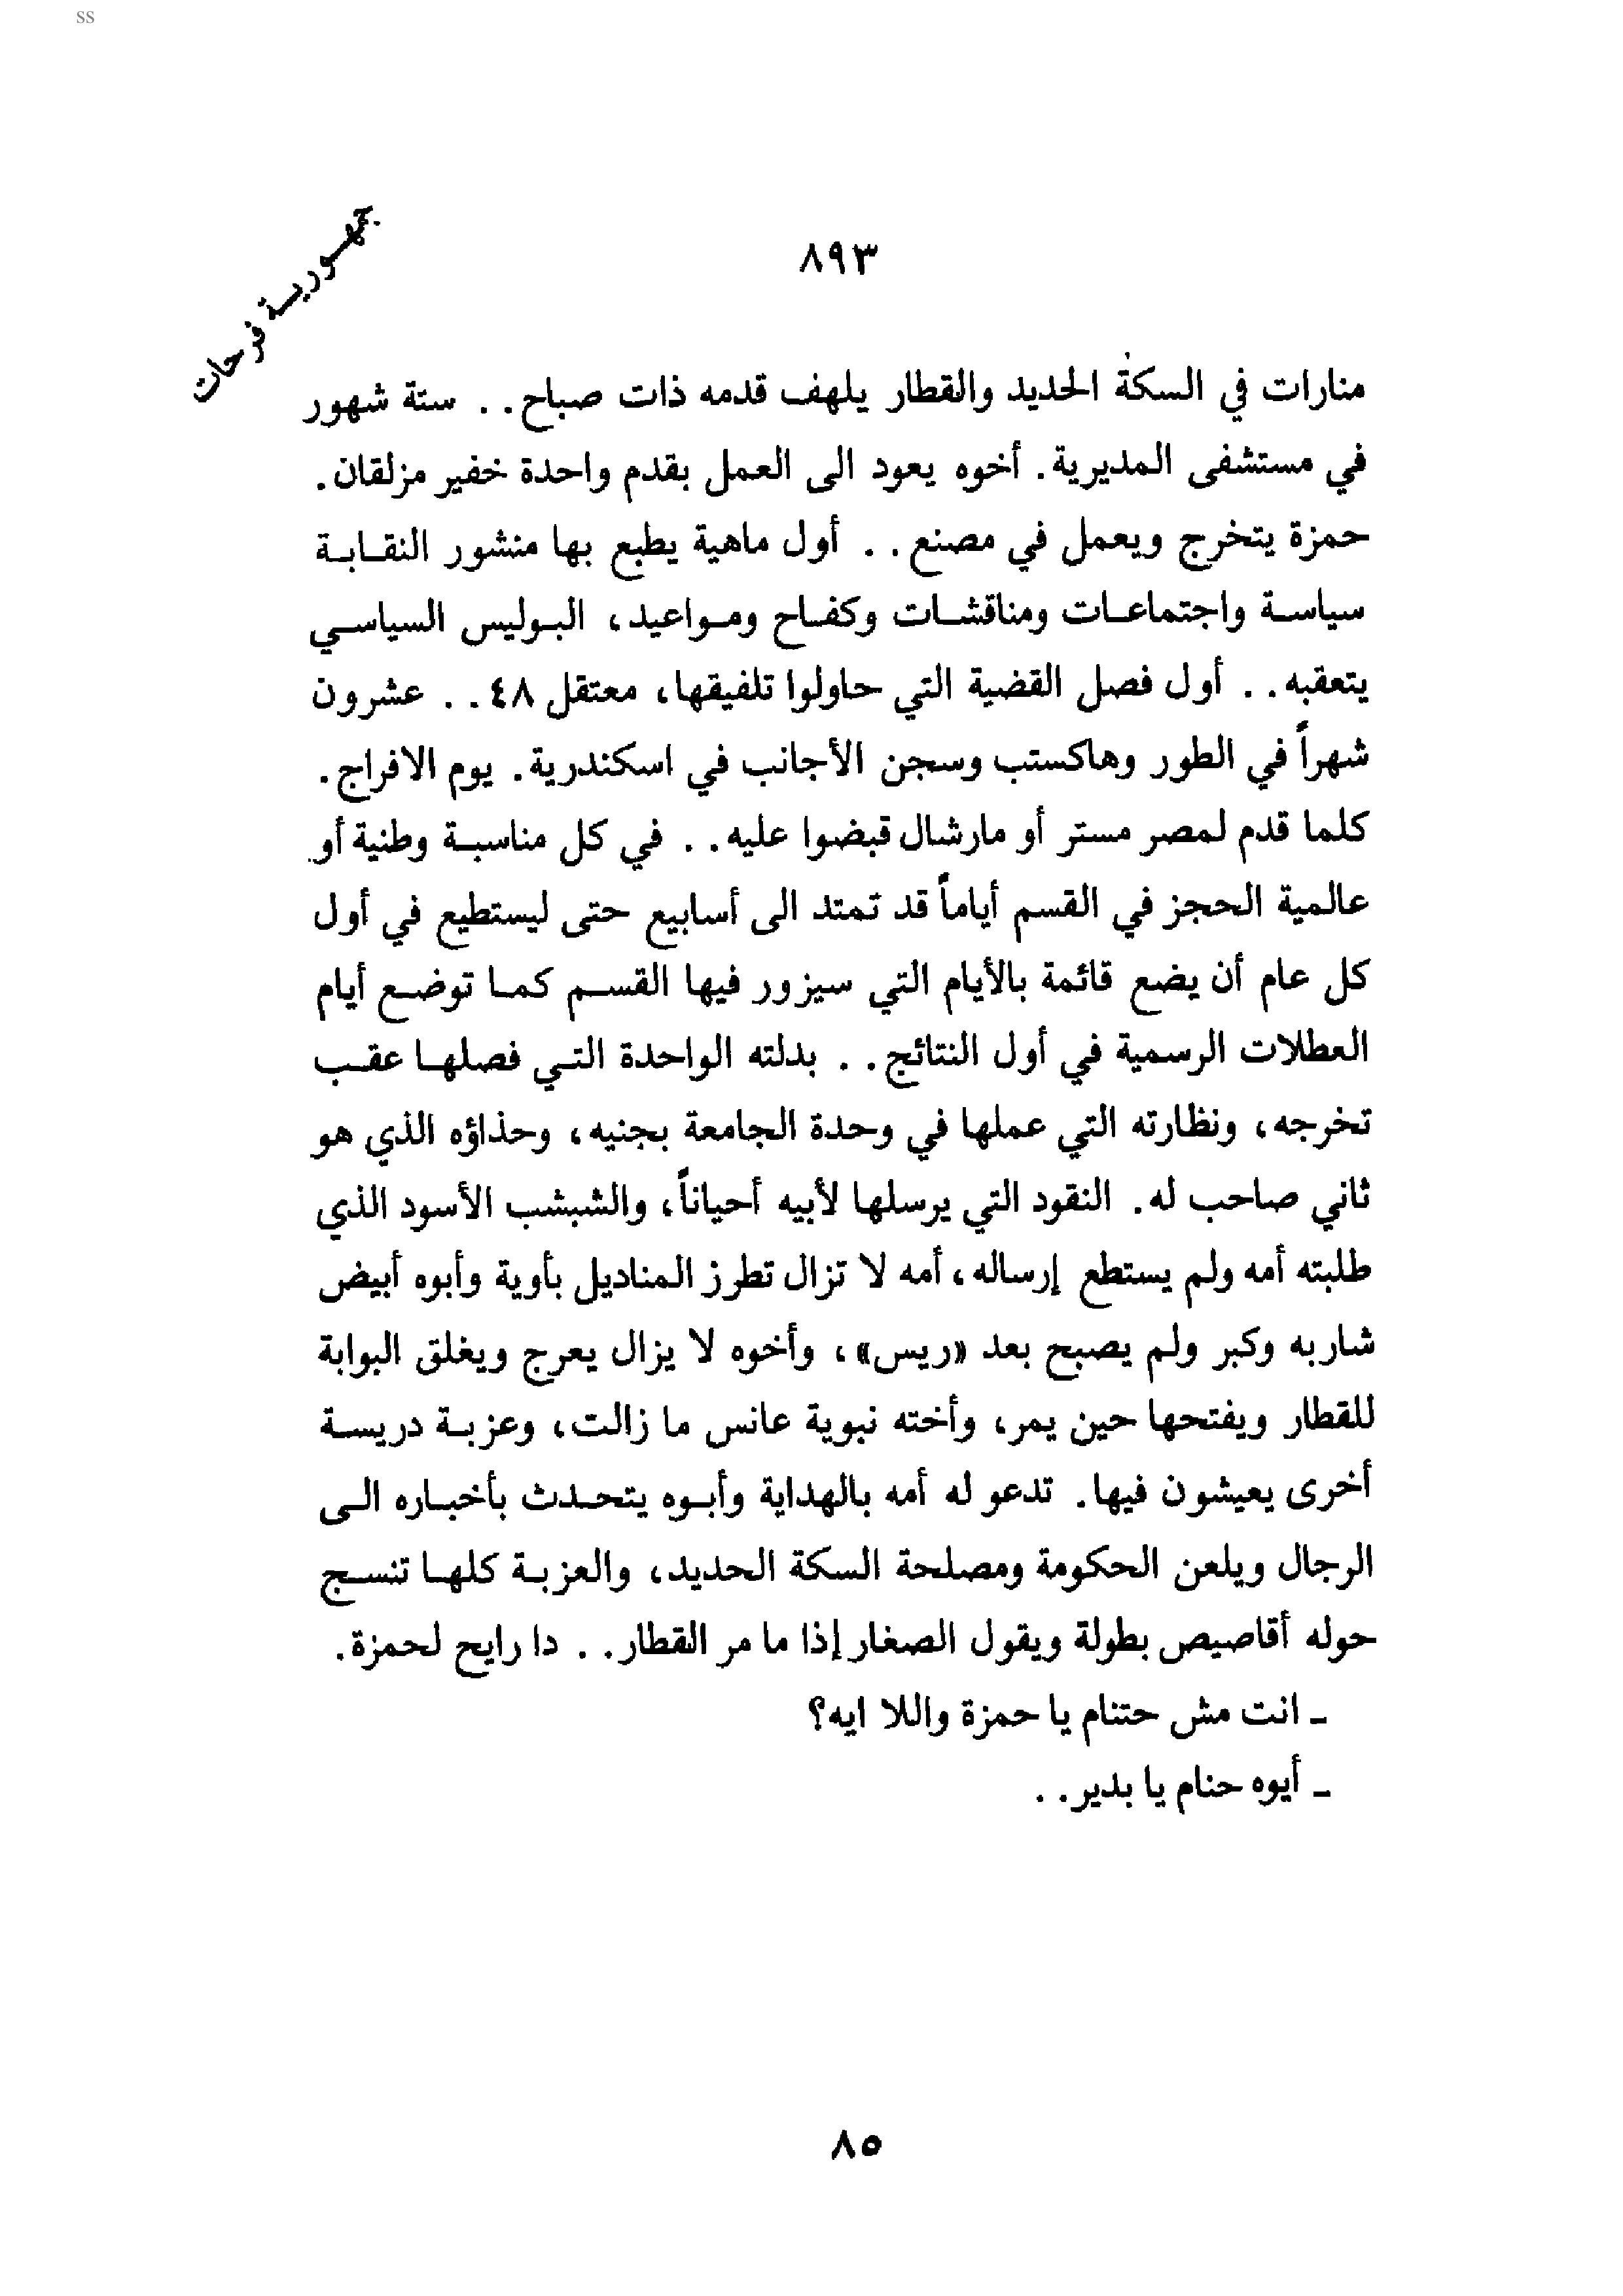 ss
جمهورية فرحات
٨٩٣
منارات في السكة الحديد والقطار يلهف قدمه ذات صباح . . ستة شهور
في مستشفى المديرية . أخوه يعود الى العمل بقدم واحدة خفير مزلقان .
حمزة يتخرج ويعمل في مصنع . . أول ماهية يطبع بها منشور النقابة
سياسة واجتماعات ومناقشات وكفاح ومواعيد ، البوليس السياسي
يتعقبه . . أول فصل القضية التي حاولوا تلفيقها ، معتقل ٤٨ . . عشرون
شهراً في الطور وهاكستب وسجن الأجانب في اسكندرية . يوم الافراج .
كلما قدم لمصر مستر أو مارشال قبضوا عليه . . في كل مناسبة وطنية أو
عالمية الحجز في القسم أياماً قد تمتد الى أسابيع حتى ليستطيع في أول
كل عام أن يضع قائمة بالأيام التي سيزور فيها القسم كما توضع أيام
العطلات الرسمية في أول النتائج . . بدلته الواحدة التي فصلها عقب
تخرجه ، ونظارته التي عملها في وحدة الجامعة بجنيه ، وحذاؤه الذي هو
ثاني صاحب له . النقود التي يرسلها لأبيه أحياناً ، والشبشب الأسود الذي
طلبته أمه ولم يستطع إرساله ، أمه لا تزال تطرز المناديل بأوية وأبوه أبيض
شاربه وكبر ولم يصبح بعد «ريس» ، وأخوه لا يزال يعرج ويغلق البوابة
للقطار ويفتحها حين يمر ، وأخته نبوية عانس ما زالت ، وعزبة دريسة
أخرى يعيشون فيها . تدعو له أمه بالهداية وأبوه يتحدث بأخباره الى
الرجال ويلعن الحكومة ومصلحة السكة الحديد ، والعزبة كلها تنسج
حوله أقاصيص بطولة ويقول الصغار إذا ما مر القطار . . دا رايح لحمزة .
ـ انت مش حتنام يا حمزة واللا ايه ؟
ـ أيوه حنام يا بدير . .
٨٥